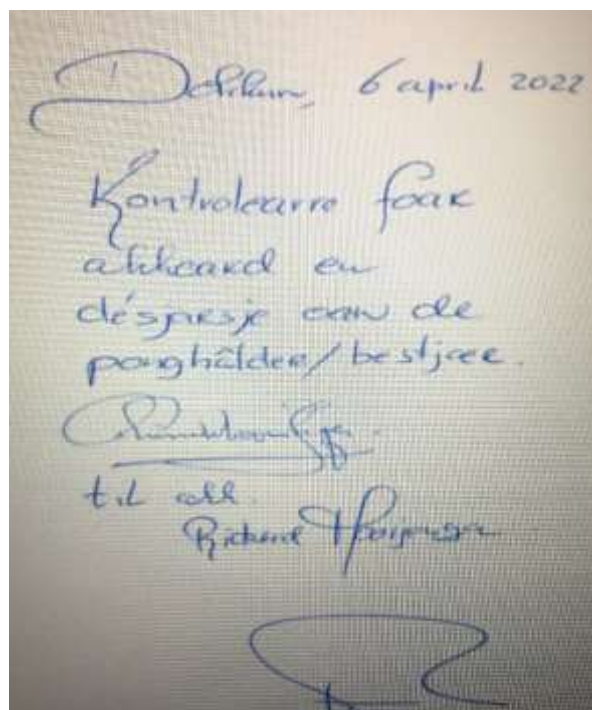 Dokkum, 6 april 2022
Kontrolearre foar
akkoard en
désjarzje oan de
ponghâlder/bestjoer.
til akk.
Richard